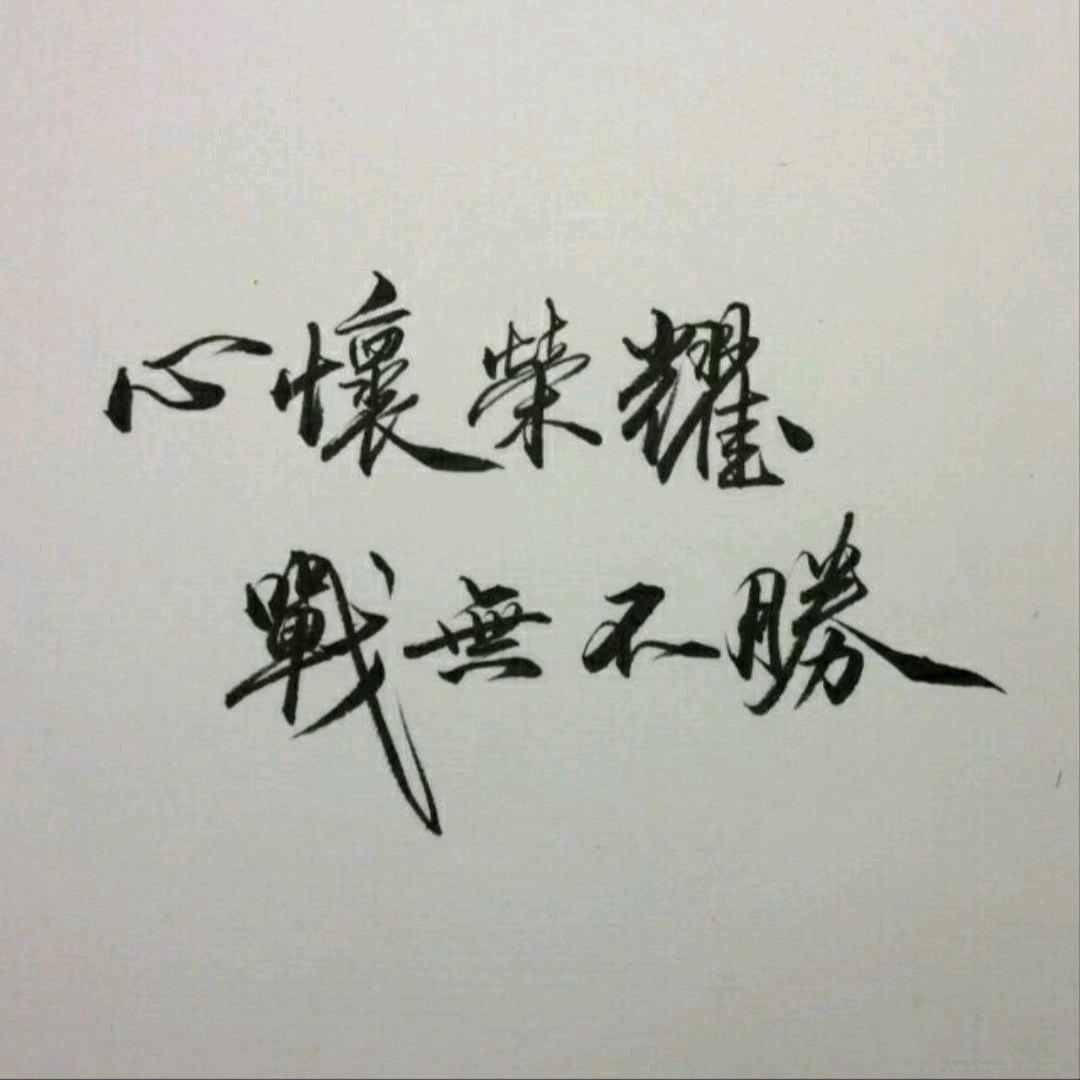 心懷榮耀、
戰無不勝